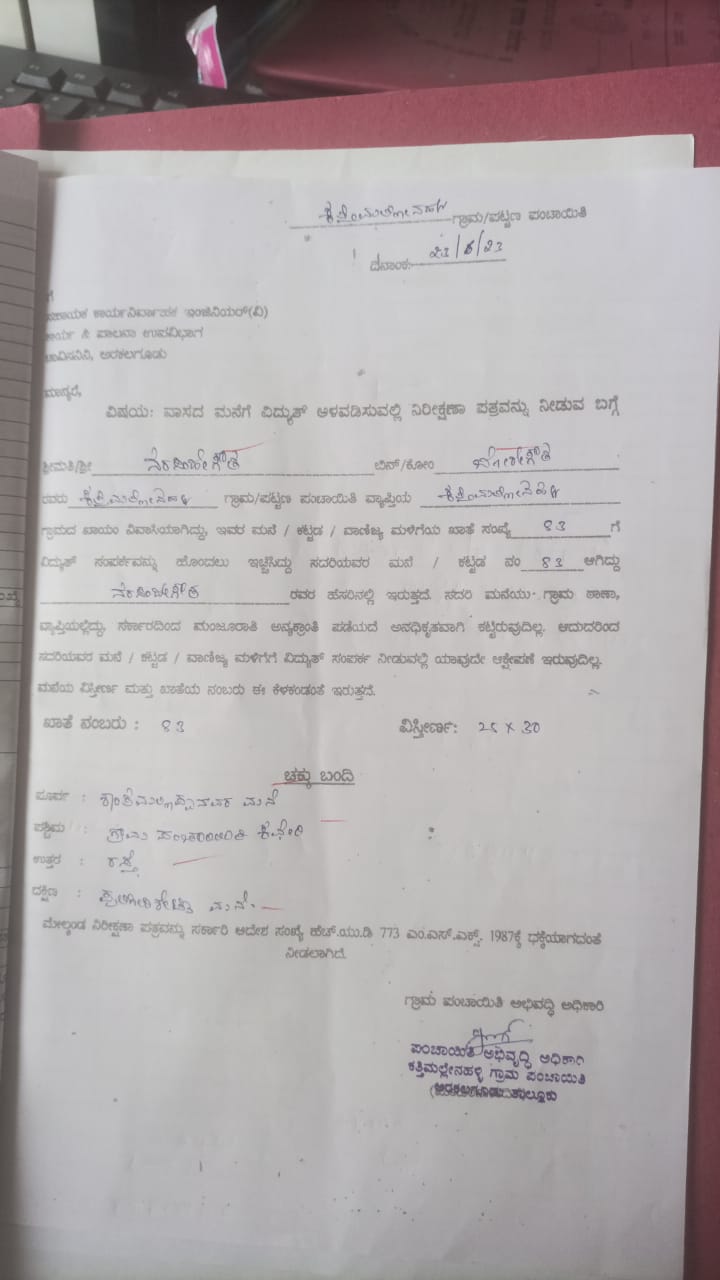 ಗ್ರಾಮ/ಪಟ್ಟಣ ಪಂಚಾಯಿತಿ
ದಿನಾಂಕ: 23/6/23
ಗೆ
ಸಹಾಯಕ ಕಾರ್ಯನಿರ್ವಾಹಕ ಇಂಜಿನಿಯರ್(ವಿ)
ಕಾರ್ಯ & ಪಾಲನಾ ಉಪವಿಭಾಗ
ಚಾವಿಸನಿನಿ, ಅರಕಲಗೂಡು
ಮಾನ್ಯರೆ,
ವಿಷಯ: ವಾಸದ ಮನೆಗೆ ವಿದ್ಯುತ್ ಅಳವಡಿಸುವಲ್ಲಿ ನಿರೀಕ್ಷಣಾ ಪತ್ರವನ್ನು ನೀಡುವ ಬಗ್ಗೆ
ಶ್ರೀಮತಿ/ಶ್ರೀ ಬಿನ್/ಕೋಂ
ರವರು ಗ್ರಾಮ/ಪಟ್ಟಣ ಪಂಚಾಯಿತಿ ವ್ಯಾಪ್ತಿಯ
ಗ್ರಾಮದ ಖಾಯಂ ನಿವಾಸಿಯಾಗಿದ್ದು, ಇವರ ಮನೆ / ಕಟ್ಟಡ / ವಾಣಿಜ್ಯ ಮಳಿಗೆಯ ಖಾತೆ ಸಂಖ್ಯೆ ೪೩ ಗೆ
ವಿದ್ಯುತ್ ಸಂಪರ್ಕವನ್ನು ಹೊಂದಲು ಇಚ್ಚಿಸಿದ್ದು ಸದರಿಯವರ ಮನೆ / ಕಟ್ಟಡ ನಂ ೪೩ ಆಗಿದ್ದು
ರವರ ಹೆಸರಿನಲ್ಲಿ ಇರುತ್ತದೆ. ಸದರಿ ಮನೆಯು ಗ್ರಾಮ ಠಾಣಾ,
ವ್ಯಾಪ್ತಿಯಲ್ಲಿದ್ದು, ಸರ್ಕಾರದಿಂದ ಮಂಜೂರಾತಿ ಅನ್ಯಕ್ರಾಂತಿ ಪಡೆಯದೆ ಅನಧಿಕೃತವಾಗಿ ಕಟ್ಟಿರುವುದಿಲ್ಲ. ಆದುದರಿಂದ
ಸದರಿಯವರ ಮನೆ / ಕಟ್ಟಡ / ವಾಣಿಜ್ಯ ಮಳಿಗೆಗೆ ವಿದ್ಯುತ್ ಸಂಪರ್ಕ ನೀಡುವಲ್ಲಿ ಯಾವುದೇ ಆಕ್ಷೇಪಣೆ ಇರುವುದಿಲ್ಲ.
ಮನೆಯ ವಿಸ್ತೀರ್ಣ ಮತ್ತು ಖಾತೆಯ ನಂಬರು ಈ ಕೆಳಕಂಡಂತೆ ಇರುತ್ತದೆ.
ಖಾತೆ ನಂಬರು : ೪೩ ವಿಸ್ತೀರ್ಣ: 25 x 30
ಚಕ್ಕು ಬಂದಿ
ಪೂರ್ವ : ಮನೆ
ಪಶ್ಚಿಮ : ಗ್ರಾಮ ಪಂಚಾಯಿತಿ ಕಛೇರಿ
ಉತ್ತರ : ರಸ್ತೆ
ದಕ್ಷಿಣ : ಮನೆ
ಮೇಲ್ಕಂಡ ನಿರೀಕ್ಷಣಾ ಪತ್ರವನ್ನು ಸರ್ಕಾರಿ ಆದೇಶ ಸಂಖ್ಯೆ ಹೆಚ್.ಯು.ಡಿ 773 ಎಂ.ಎಸ್.ಎಕ್ಸ್. 1987ಕ್ಕೆ ಧಕ್ಕೆಯಾಗದಂತೆ
ನೀಡಲಾಗಿದೆ.
ಗ್ರಾಮ ಪಂಚಾಯಿತಿ ಅಭಿವೃದ್ಧಿ ಅಧಿಕಾರಿ
ಪಂಚಾಯಿತಿ ಅಭಿವೃದ್ಧಿ ಅಧಿಕಾರಿ
ಕತ್ತಿಮಲ್ಲೇನಹಳ್ಳಿ ಗ್ರಾಮ ಪಂಚಾಯಿತಿ
ಅರಕಲಗೂಡು ತಾಲ್ಲೂಕು